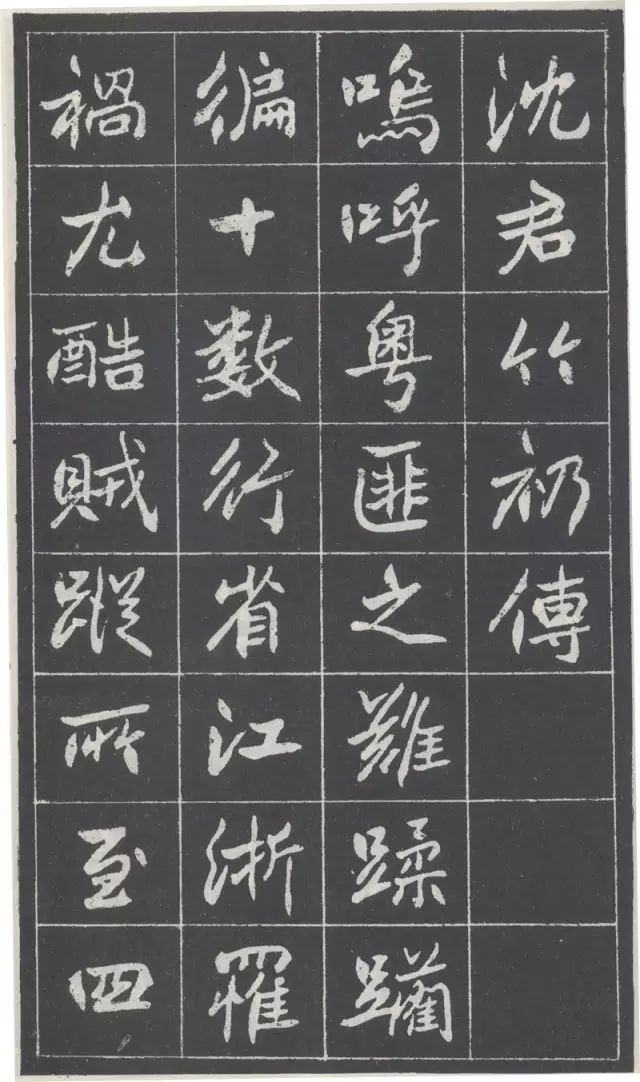 沈君竹礽傳
嗚呼粵匪之難蹂躪
徧十数行省江浙罹
禍尤酷賊蹤所至四